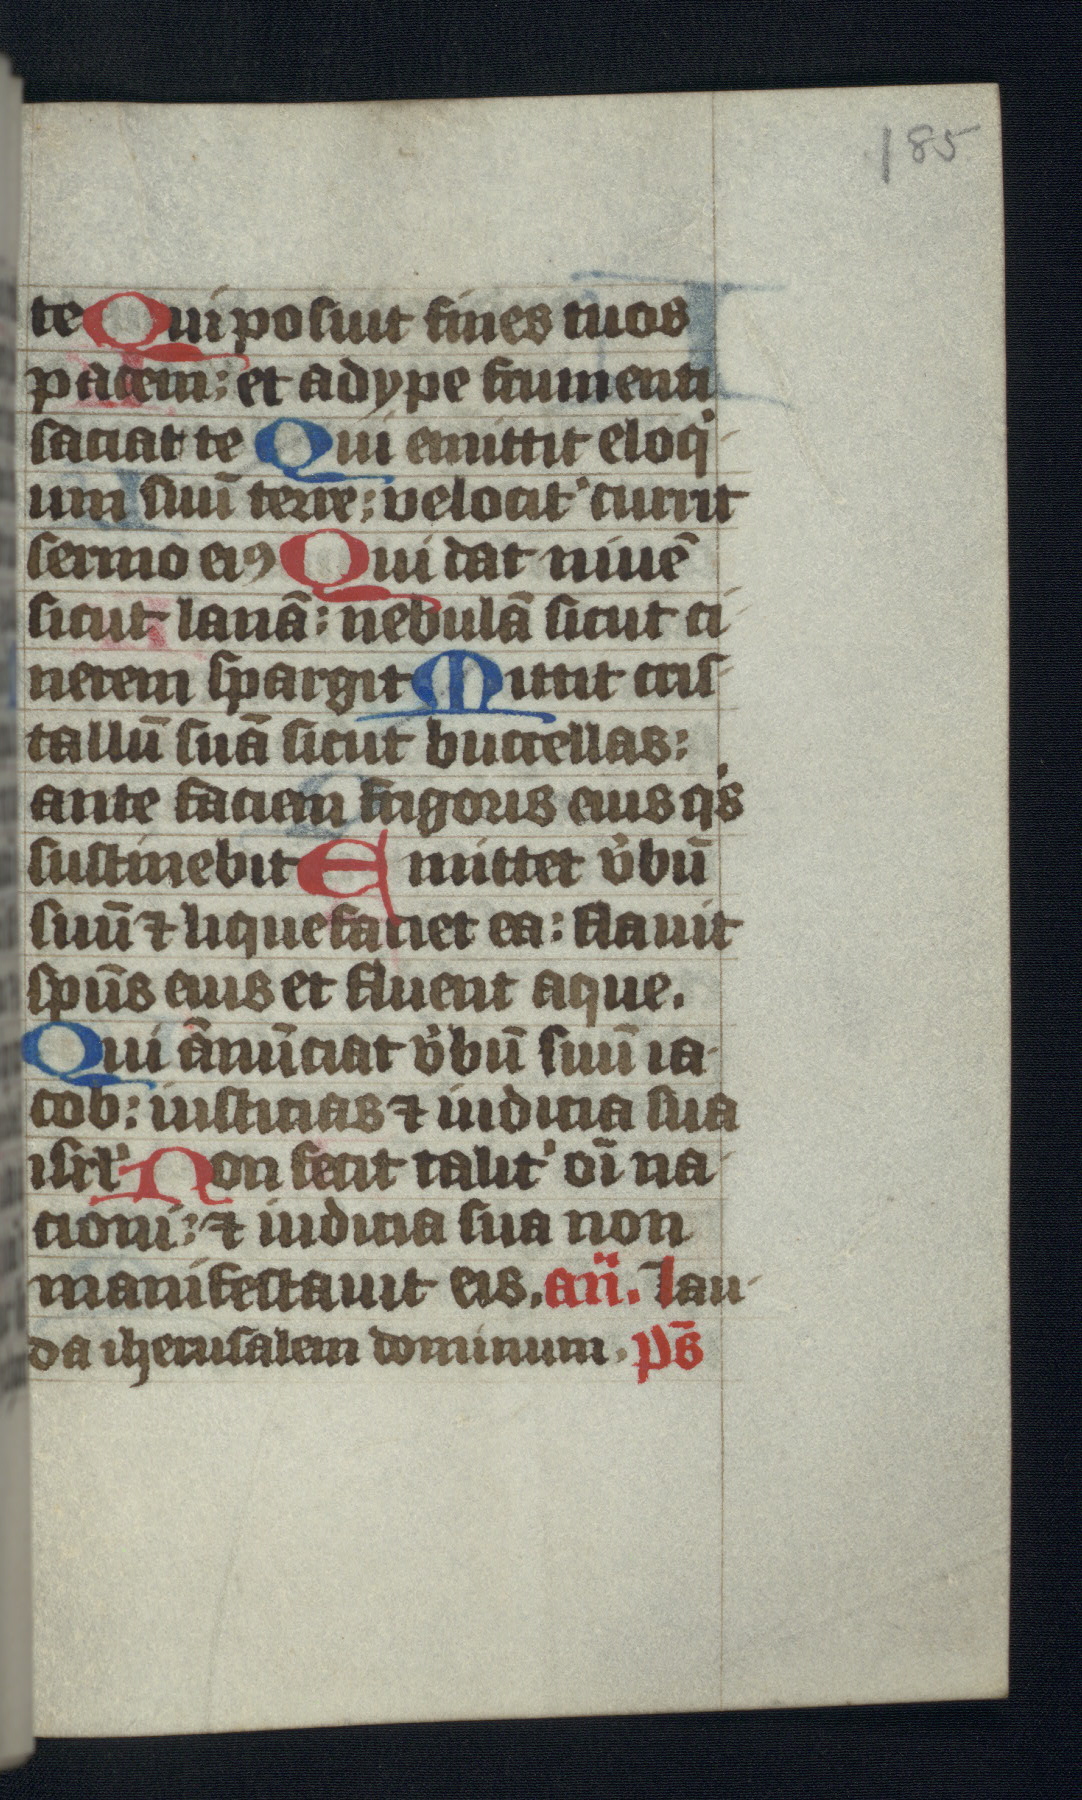 185
te Qui posuit fines tuos
pacem: et adype frumenti
saciat te Qui emittit eloqⁱ-
um suū terre: velocit' currit
sermo eiꝯ Qui dat niuē
sicut lanā: nebulā sicut ci
nerem spargit Mittit cris-
tallū suā sicut buccellas:
ante faciem frigoris eius qⁱs
sustinebit Emittet v̓bū
suū ⁊ liquefaciet ea: flauit
spūs eius et fluent aque.
Qui ānūciat v̓bū suū ia-
cob: iusticias ⁊ iudicia sua
isrl' Non fecit talit' oī na-
cioni: ⁊ iudicia sua non
manifestauit eis. an̄. Lau-
da iherusalem dominum. ps̄